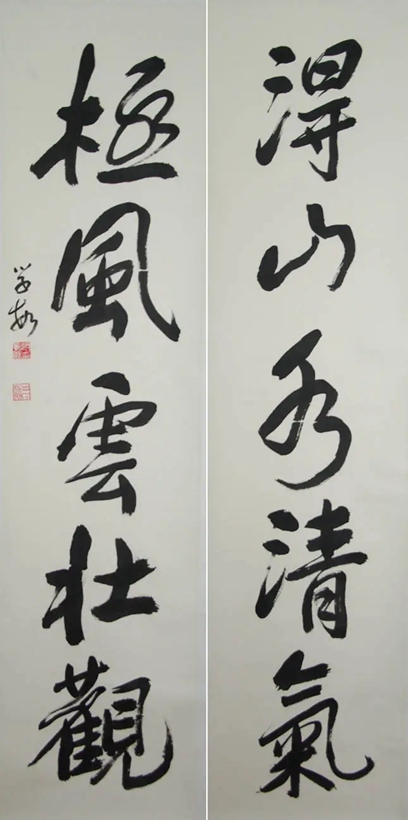 得山水清氣
極風雲壯觀